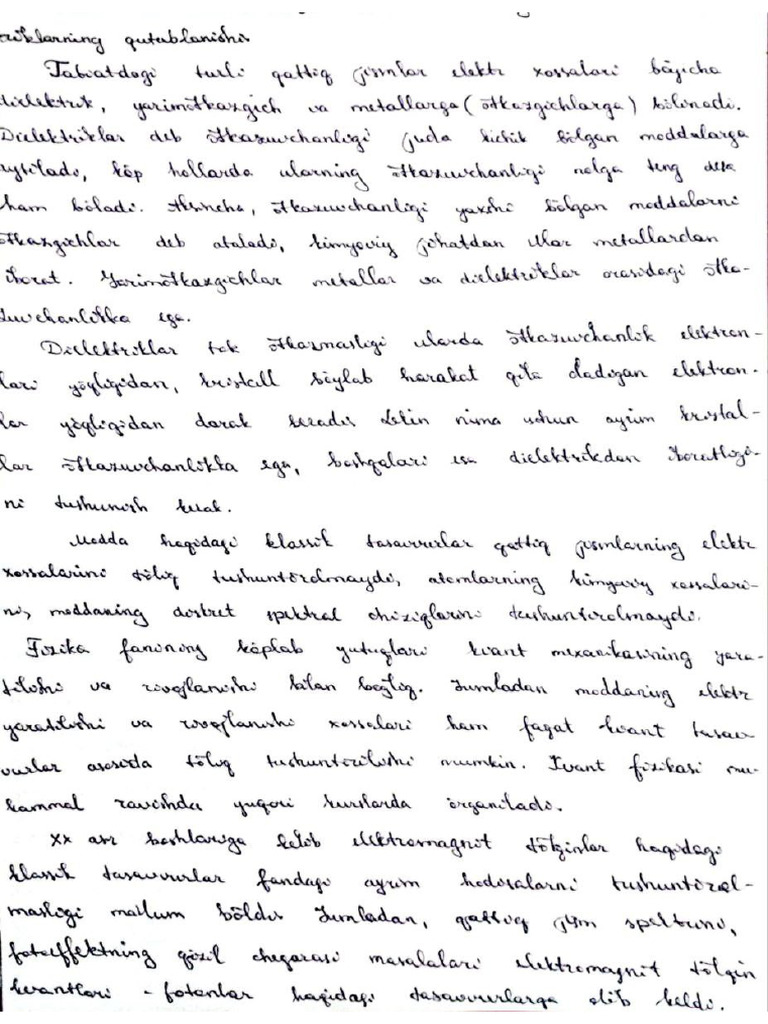 riklarning qutublanishi
Tabiatdagi turli qattiq jismlar elektr xossalari bõyicha
dielektrik, yarimõtkazgich va metallarga (õtkazgichlarga) bõlinadi.
Dielektriklar deb õtkazuvchanligi juda kichik bõlgan moddalarga
aytiladi, kõp hollarda ularning õtkazuvchanligi nolga teng desa
ham bõladi. Aksincha, õtkazuvchanligi yaxshi bõlgan moddalarni
õtkazgichlar deb ataladi, kimyoviy jihatdan ular metallardan
iborat. Yarimõtkazgichlar metallar va dielektriklar orasidagi õtka-
zuvchanlikka ega.
Dielektriklar tok õtkazmasligi ularda õtkazuvchanlik elektron-
lari yõqligidan, kristall bõylab harakat qila oladigan elektron-
lar yõqligidan darak beradi. Lekin nima uchun ayrim kristal-
lar õtkazuvchanlikka ega, boshqalari esa dielektrikdan iboratligi-
ni tushunish kerak.
Modda haqidagi klassik tasavvurlar qattiq jismlarning elektr
xossalarini tõliq tushuntirolmaydi, atomlarning kimyoviy xossalari-
ni, moddaning diskret spektral chiziqlarini tushuntirolmaydi.
Fizika fanining kõplab yutuqlari kvant mexanikasining yara-
tilishi va rivojlanishi bilan bog̃liq. Jumladan moddaning elektr
yaratilishi va rivojlanishi xossalari ham faqat kvant tasav-
vurlar asosida tõliq tushuntirilishi mumkin. Kvant fizikasi mu-
kammal ravishda yuqori kurslarda õrganiladi.
XX asr boshlariga kelib elektromagnit tõlqinlar haqidagi
klassik tasavvurlar fandagi ayrim hodisalarni tushuntirol-
masligi ma'lum bõldi. Jumladan, qattiq jism spektrini,
fotoeffektning qizil chegarasi masalalari elektromagnit tõlqin
kvantlari - fotonlar haqidagi tasavvurlarga olib keldi.